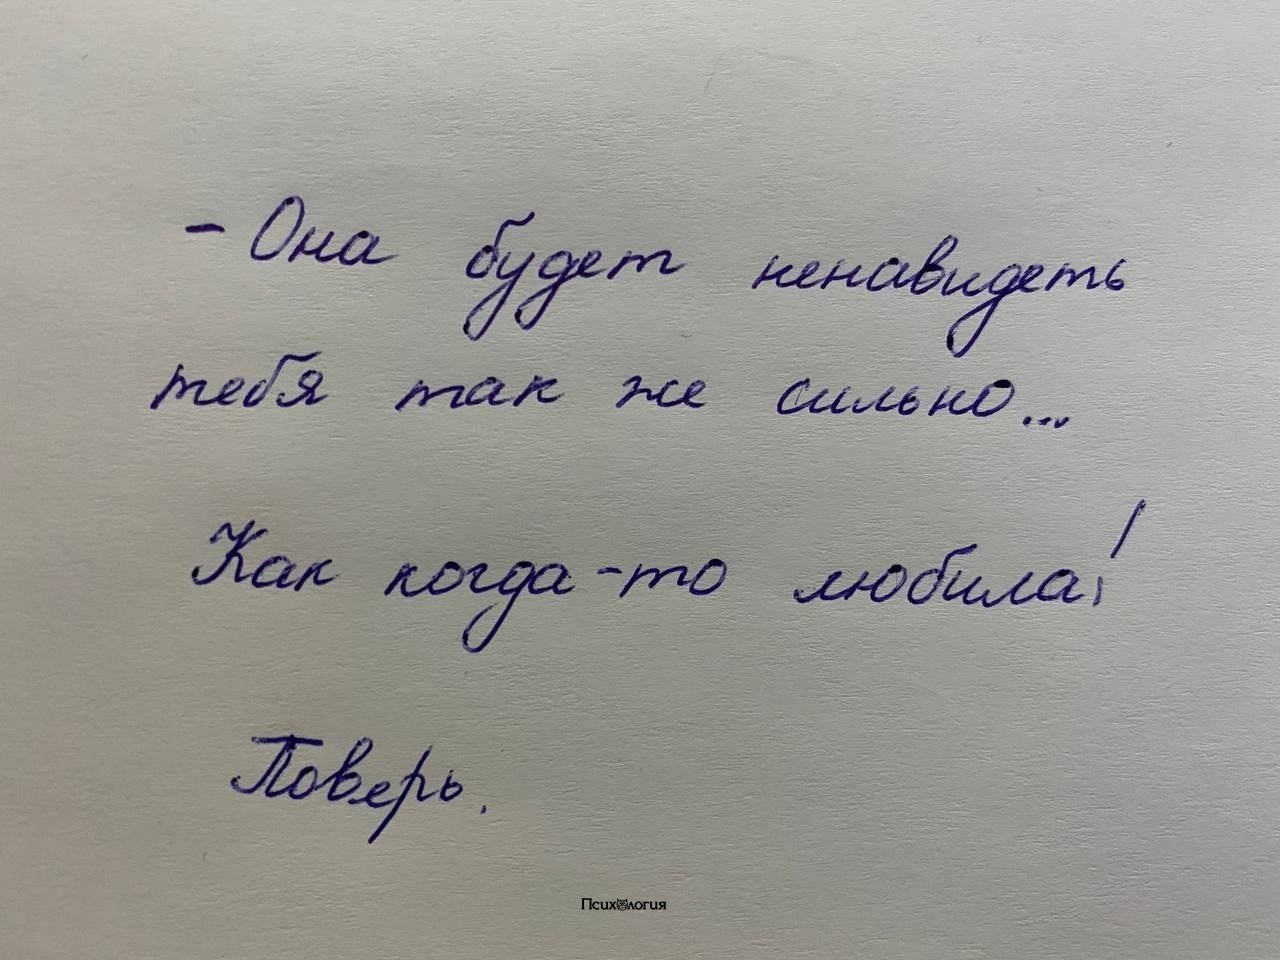 - Она будет ненавидеть
тебя так же сильно...
Как когда-то любила!
Поверь.
Психология